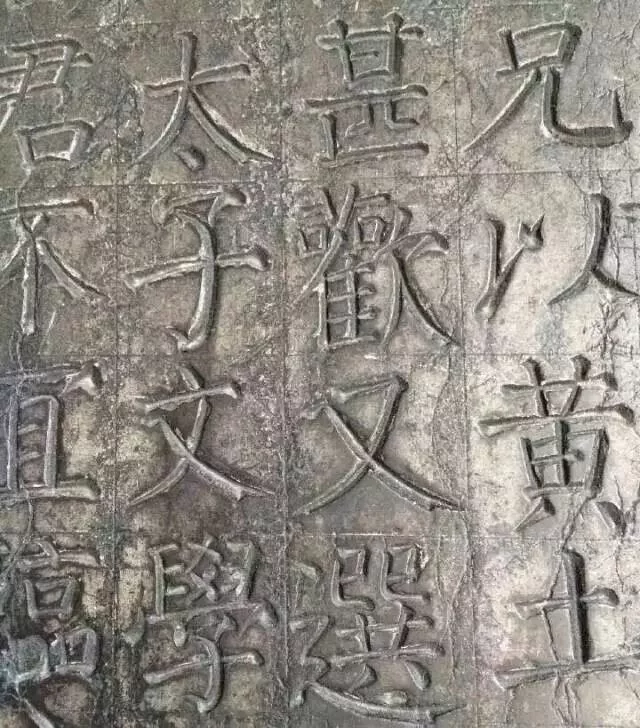 兄以黄土
甚歡又選
太子文學
君不